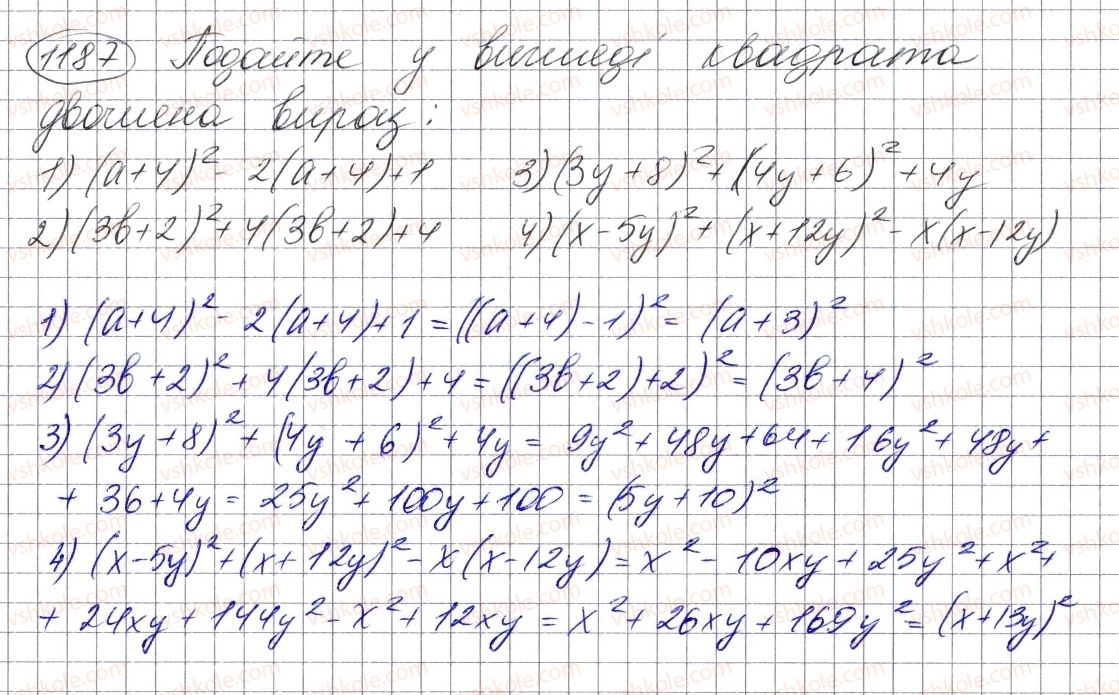 1187 Подайте у вигляді квадрата
двочлена вираз:
1) (a+4)² - 2(a+4)+1 3) (3y+8)²+(4y+6)²+4y
2) (3b+2)²+4(3b+2)+4 4) (x-5y)²+(x+12y)²-x(x-12y)
1) (a+4)²-2(a+4)+1=((a+4)-1)²=(a+3)²
2) (3b+2)²+4(3b+2)+4=((3b+2)+2)²=(3b+4)²
3) (3y+8)²+(4y+6)²+4y=9y²+48y+64+16y²+48y+
+36+4y=25y²+100y+100=(5y+10)²
4) (x-5y)²+(x+12y)²-x(x-12y)=x²-10xy+25y²+x²+
+24xy+144y²-x²+12xy=x²+26xy+169y²=(x+13y)²